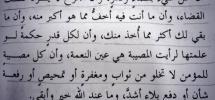 القضاء، وأن ما أنت فيه أخف مما هو أكبر منه، وأن ما
بقي لك أكثر مما أخذ منك، وأن لكل قدر حكمة لو
علمتها لرأيت المصيبة هي عين النعمة، وأن كل مصيبة
للمؤمن لا تخلو من ثواب ومغفرة أو تمحيص أو رفعة
شأن أو دفع بلاء أشد، وما عند الله خير وأبقى.